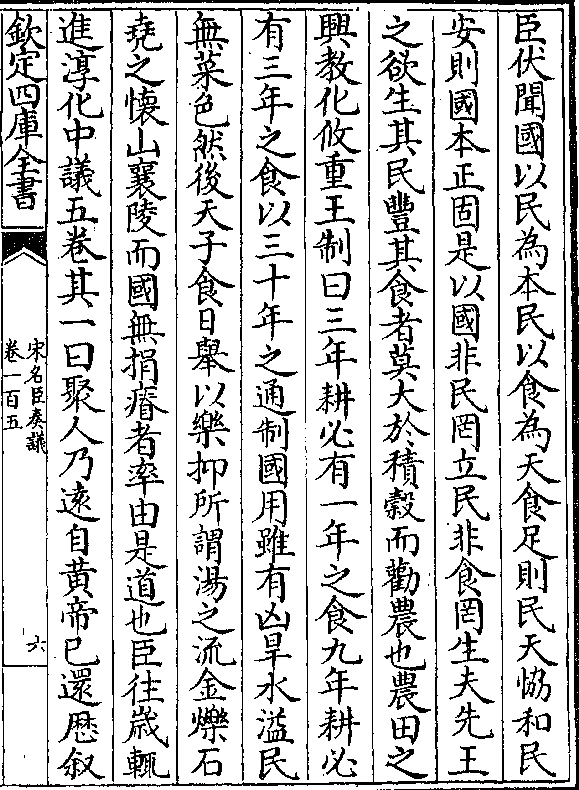 臣伏聞國以民為本民以食為天食足則民天恊和民
安則國本正固是以國非民罔立民非食罔生夫先王
之欲生其民豐其食者莫大於積穀而勸農也農田之
興教化攸重王制曰三年耕必有一年之食九年耕必
有三年之食以三十年之通制國用雖有凶旱水溢民
無菜色然後天子食日舉以樂抑所謂湯之流金爍石
堯之懷山襄陵而國無捐瘠者率由是道也臣往歲輒
進淳化中議五卷其一曰聚人乃逺自黄帝已還歴叙
欽定四庫全書
宋名臣奏議
卷一百五
六